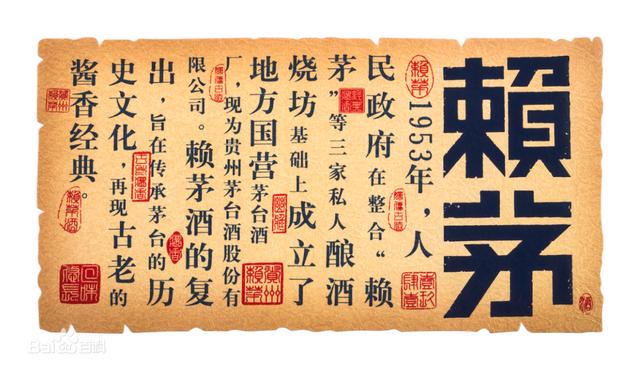 賴茅
酒
賴茅
1953年，人
壹玖肆壹
民政府在整合“赖
茅”等三家私人酿酒
烧坊基础上成立了
地方国营茅台酒
貴州賴茅
厂，现为贵州茅台酒股份有
限公司。赖茅酒的复
出，旨在传承茅台的历
史文化，再现古老的
酱香经典。
Bai百科